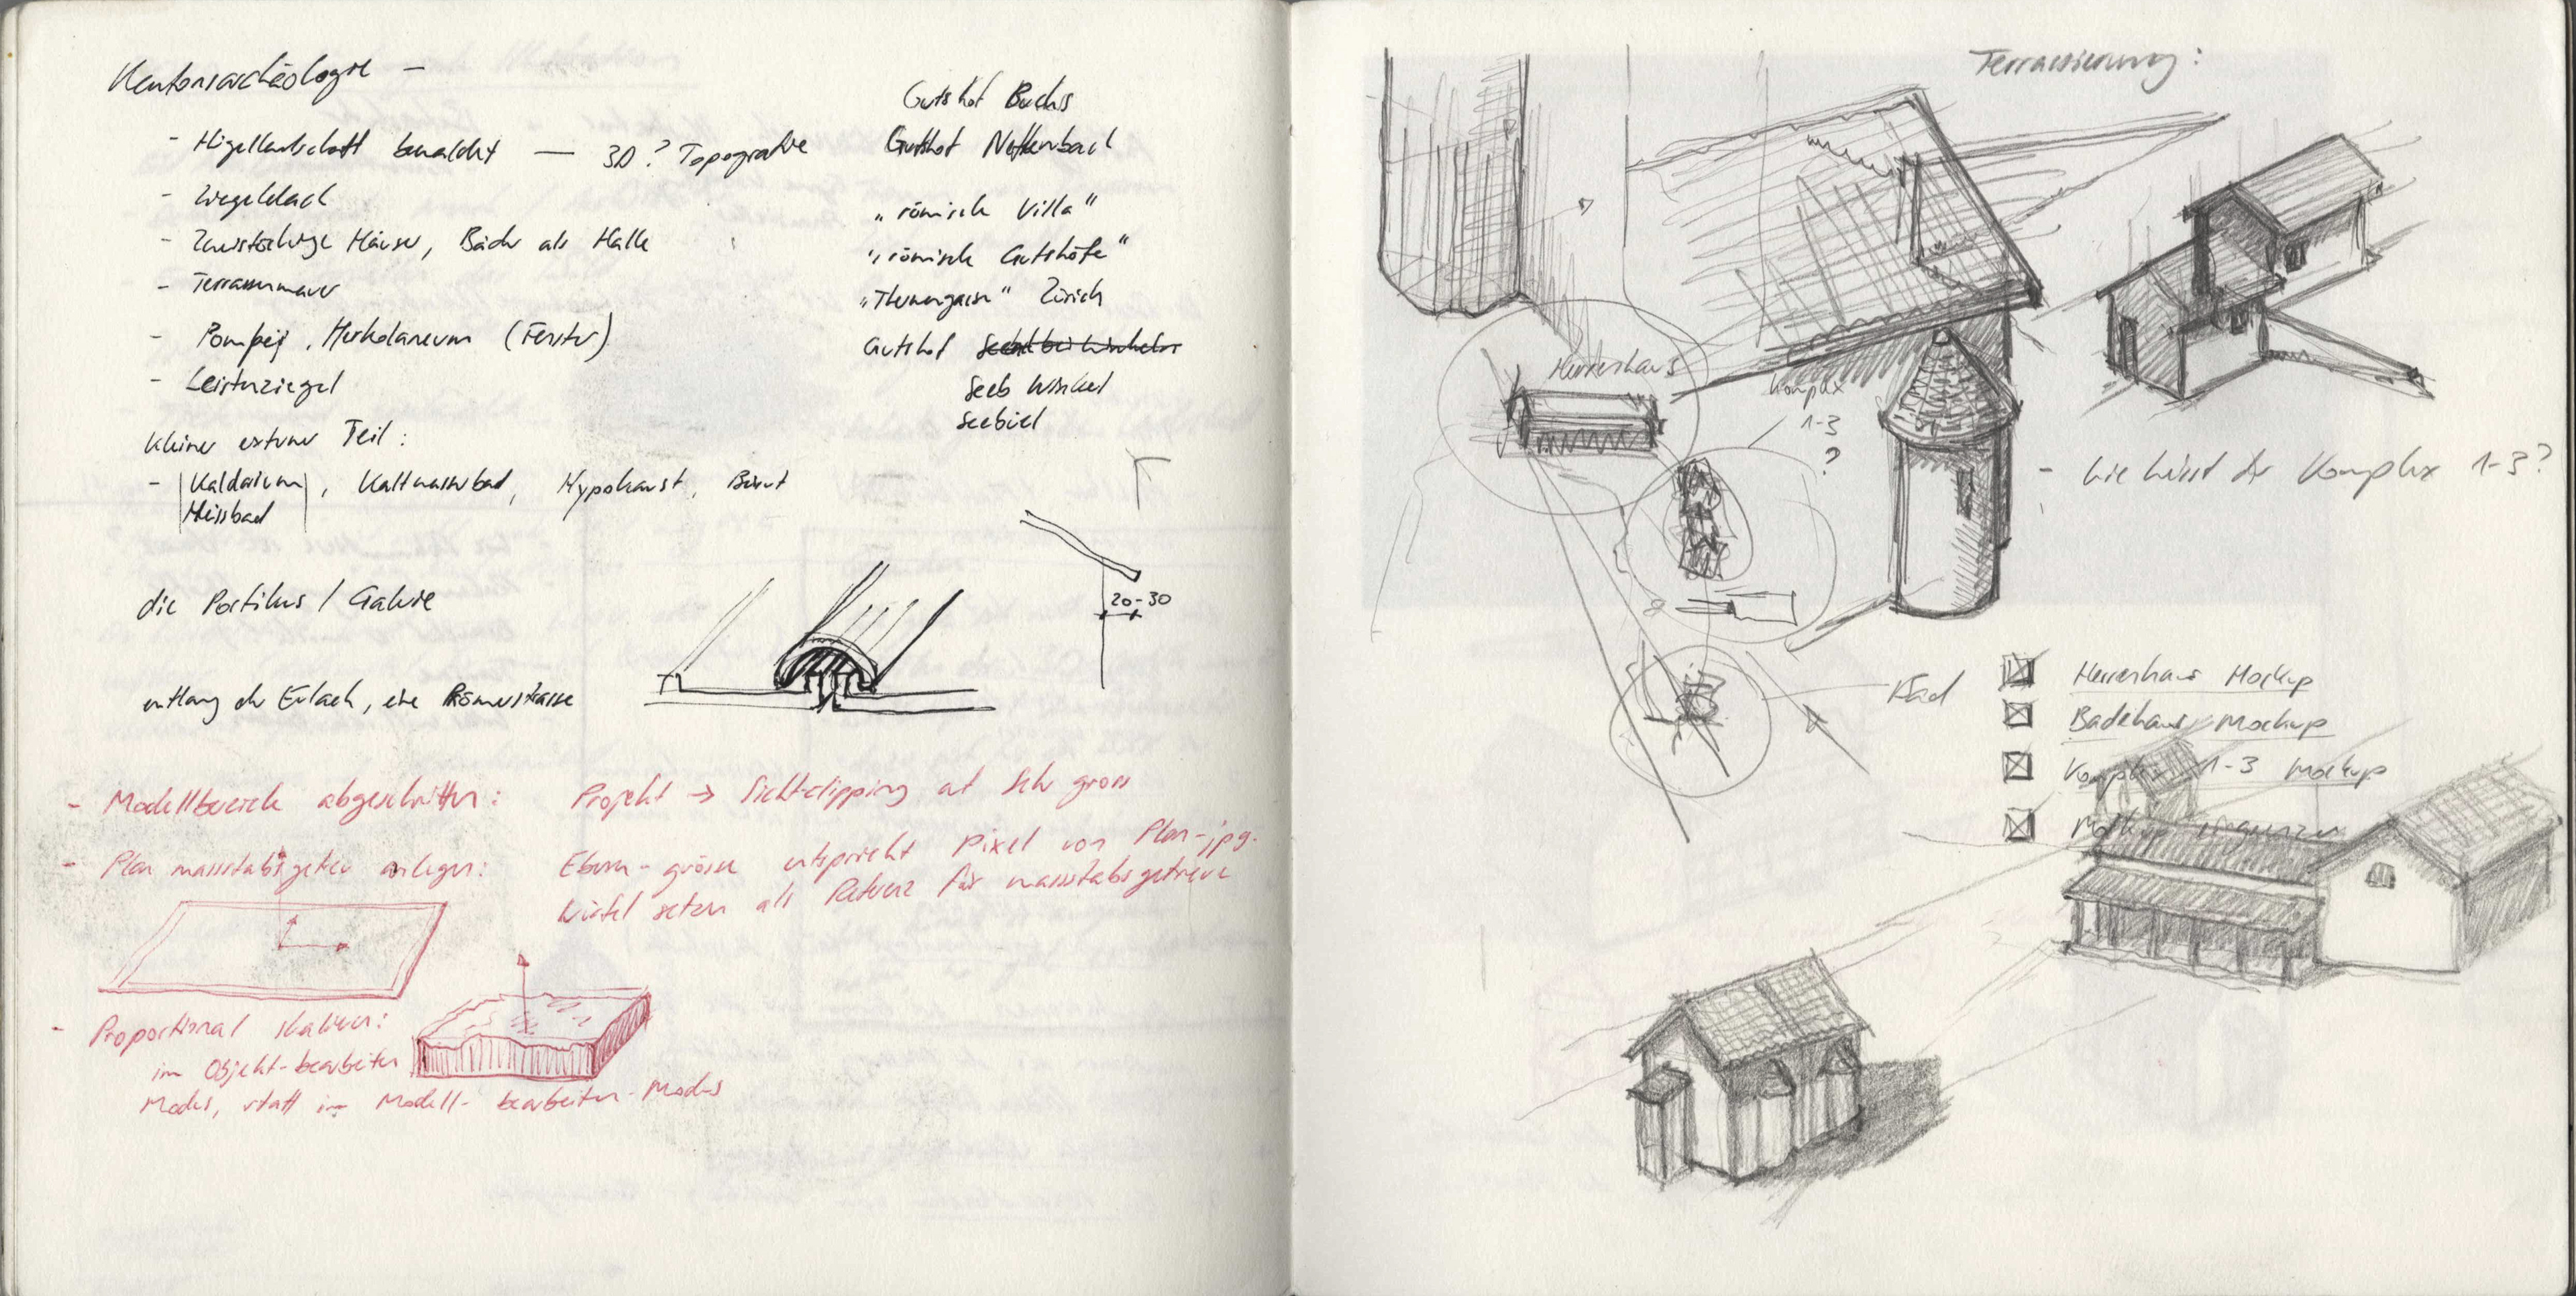 Kantonsarchäologie –
- Hügellandschaft bewaldet — 3D? Topografie
- Ziegeldach
- Zweistöckige Häuser, Bäder als Halle
- Terrassenmauer
- Pompeji, Herkolaneum (Fenster)
- Leistenziegel
kleiner externer Teil:
- Kaldarium, Kaltwasserbad, Hypokaust,
Heissbad
die Portikus / Galerie
entlang der Eulach, eine Römerstrasse
Gutshof Buchs
Gutshof Neftenbach
"römische Villa"
"römische Gutshöfe"
"Thermengasse" Zürich
Gutshof
Seeb Winkel
20-30
- Modellbereich abgeschnitten: Projekt → Sichtclipping auf sehr gross
- Plan masstabsgetreu anlegen: Ebenen-grösse entspricht Pixel von Plan-jpg.
Würfel setzen als Referenz für massstabsgetreue
- Proportional skalieren:
im Objekt-bearbeiten
Modus, statt im Modell-bearbeiten-Modus
Terrassierung:
Herrenhaus
Komplex
1-3
?
- Wie heisst der Komplex 1-3?
Bad
Herrenhaus Mockup
Badehaus Mockup
Komplex 1-3 Mockup
Mockup